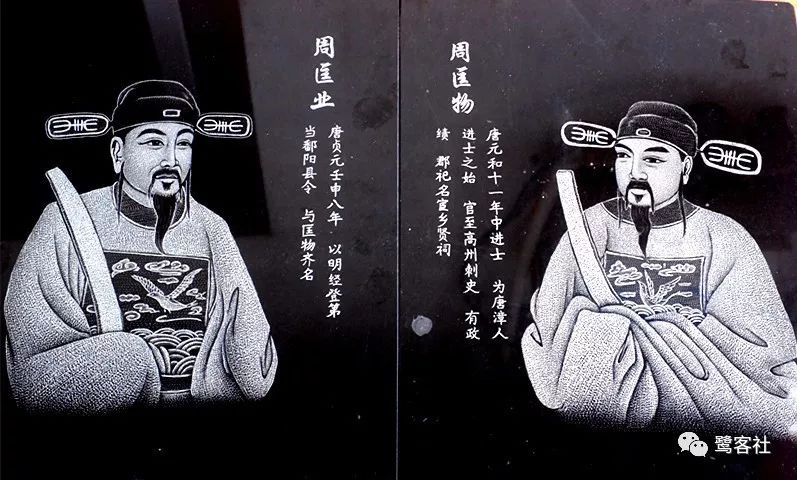 周匡业
唐贞元壬申八年 以明经登第
当鄱阳县令 与匡物齐名
周匡物
唐元和十一年中进士 为唐漳人
进士之始 官至高州刺史 有政
绩 郡祀名宦乡贤祠
鹭客社